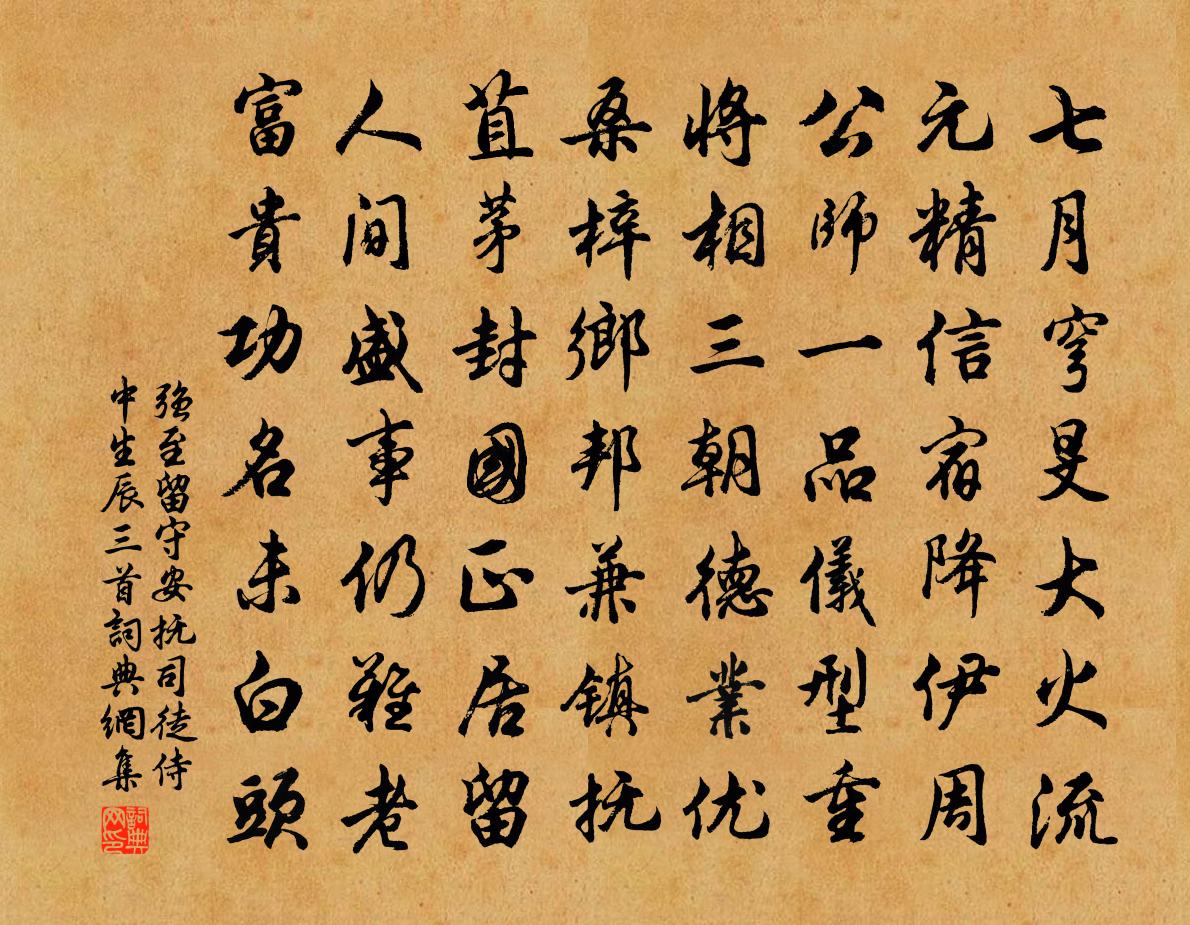 七月穹旻大火流
元精信宿降伊周
公師一品儀型重
將相三朝德業优
桑梓鄉邦兼鎮抚
苴茅封國正居留
人间盛事仍難老
富貴功名未白頭
强至留守安抚司徒侍
中生辰三首詞典網集
詞典
网印